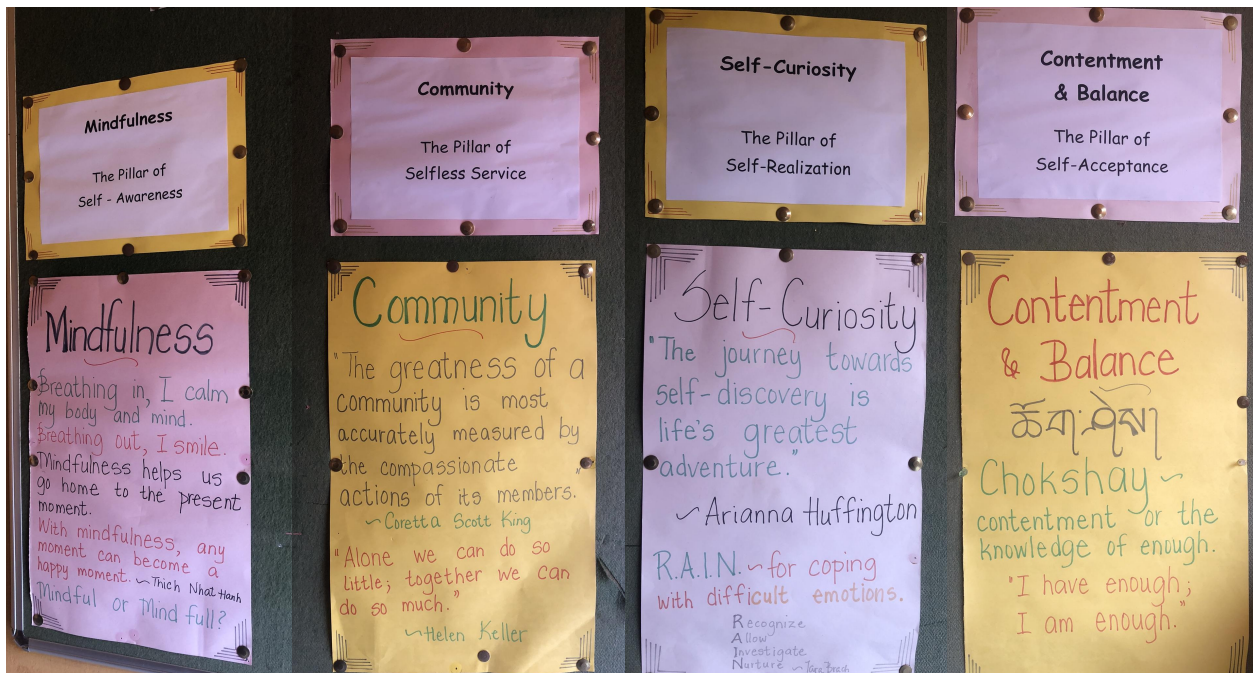 Mindfulness
The Pillar of
Self - Awareness
Mindfulness
Breathing in, I calm
my body and mind.
Breathing out, I smile.
Mindfulness helps us
go home to the present
moment.
With mindfulness, any
moment can become a
happy moment. ~Thich Nhat Hanh
Mindful or Mind full?
Community
The Pillar of
Selfless Service
Community
"The greatness of a
community is most
accurately measured by
the compassionate
actions of its members."
~Coretta Scott King
"Alone we can do so
little; together we can
do so much."
~Helen Keller
Self-Curiosity
The Pillar of
Self-Realization
Self-Curiosity
"The journey towards
self-discovery is
life's greatest
adventure."
~Arianna Huffington
R.A.I.N. ~for coping
with difficult emotions.
Recognize
Allow
Investigate
Nurture ~Tara Brach
Contentment
& Balance
The Pillar of
Self-Acceptance
Contentment
& Balance
ཆོག་ཤེས།
Chokshay ~
contentment or the
knowledge of enough.
"I have enough;
I am enough."